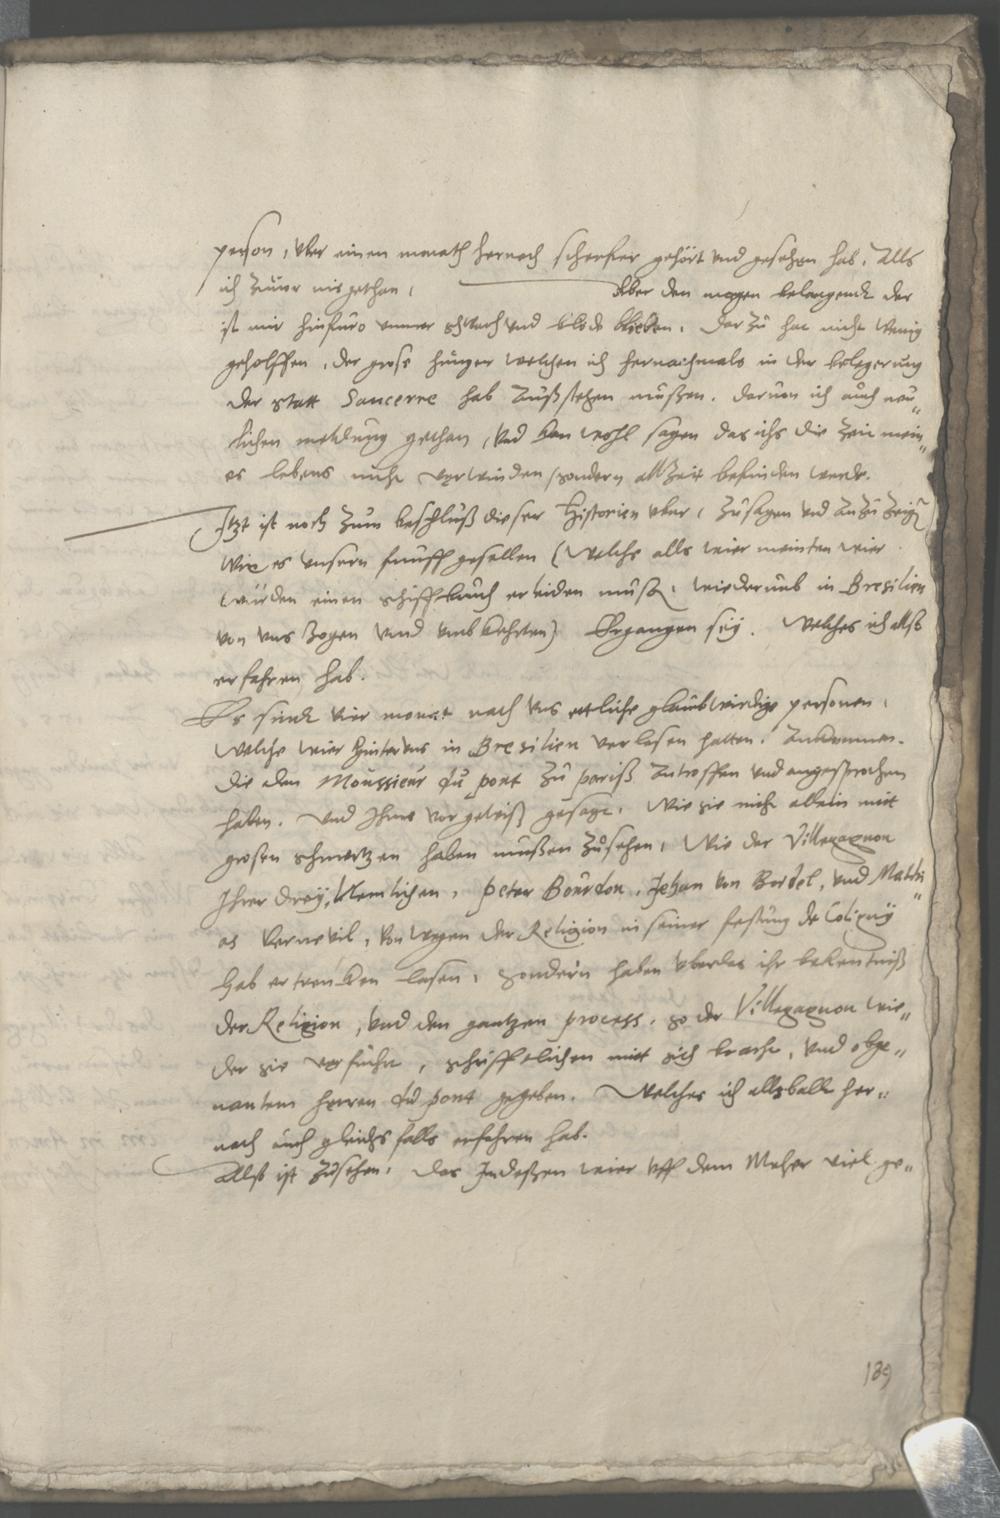 person, Vber einen monath hernach scherffer gehört vnd gesehen hab. Alls
ich Zuuor nie gethan, Aber den magen belangendt der
ist mir hinfuro immer schwach vnd blöde blieben. Dar Zu hat nicht wenig
geholffen, der grose hunger welchen ich hernachmals in der belegerung
der Statt Sancerre hab Außstehen müßen. daruon ich auch neu„
lichen meldung gethan, Vnd kan wohl sagen das ichs die Zeit mein„
es lebens nicht verwinden sondern all Zeit befinden werde.
Itzt ist noch Zum beschluß dieser Historien vber, Zusagen vnd An Zu Zeigen
Wie es vnsern funff gesellen (Welche alls wier meinten wier
würden einen schiffbruch erleiden müßen, wiederumb in Bresilien
von vns Zogen vnd vmb kehrten) Ergangen sey. Welches ich allso
erfahren hab.
Es sindt Vier monat nach vns ettliche glaubwirdige personen,
Welche wier hinter vns in Bresilien verlasen hatten, Ankommen.
die den Moussieur du pont Zu pariß Antroffen vnd angesprochen
haben. Vnd Ihme vor gewiß gesagt, Wie sie nicht allein mitt
grosen schmertzen haben müßen Zusehen, Wie der Villegagnon
Ihrer Drey, Nemlichen, Peter Bourdon, Jehan von Bordel, vnd Matthi„
as Vernevil, Von wegen der Religion in seiner festung de Coligny
hab ertrencken lasen, sondern haben vberdas ihr bekentniß
der Religion, vnd den gantzen process, so der Villegagnon wie„
der sie verführt, schrifftlichen mitt sich bracht, vnd obge„
nantem herren du pont gegeben. Welches ich allsbaldt her„
nach auch gleichs falls erfahren hab.
Allso ist Zusehen, das Indeßen wier Vff dem Meher viel ge„
189